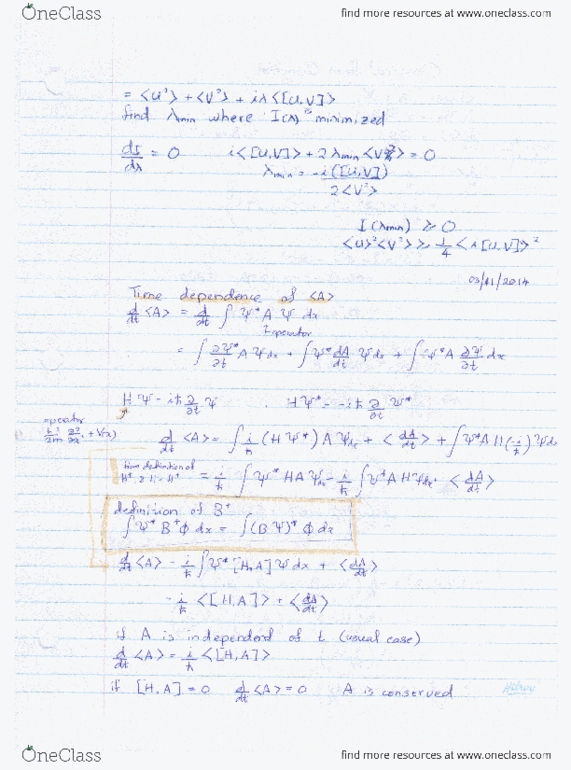 OneClass
find more resources at www.oneclass.com
= <U²> + <V²> + iλ <[U,V]>
find λmin where I(λ) is minimized
dI/dλ = 0    i<[U,V]> + 2 λmin <V²> = 0
λmin = -i<[U,V]> / 2<V²>
I(λmin) ≥ 0
<U>²<V²> ≥ 1/4 <i[U,V]>²
03/11/2014
Time dependence of <A>
d/dt <A> = d/dt ∫ Ψ* A Ψ dx
operator
= ∫ ∂Ψ*/∂t A Ψ dx + ∫ Ψ* dA/dt Ψ dx + ∫ Ψ* A ∂Ψ/∂t dx
HΨ = iħ ∂/∂t Ψ    HΨ* = -iħ ∂/∂t Ψ*
operator
d/dt <A> = ∫ i/ħ (HΨ*) A Ψ dx + <dA/dt> + ∫ Ψ* A H (-i/ħ) Ψ dx
from definition of
= i/ħ ∫ Ψ* HA Ψ dx - i/ħ ∫ Ψ* A H Ψ dx + <dA/dt>
definition of B⁺
∫ Ψ* B⁺ Φ dx = ∫ (BΨ)* Φ dx
d/dt <A> = i/ħ ∫ Ψ* [H,A] Ψ dx + <dA/dt>
= i/ħ <[H,A]> + <dA/dt>
if A is independend of t (usual case)
d/dt <A> = i/ħ <[H,A]>
if [H,A] = 0    d/dt <A> = 0    A is conserved
OneClass
find more resources at www.oneclass.com